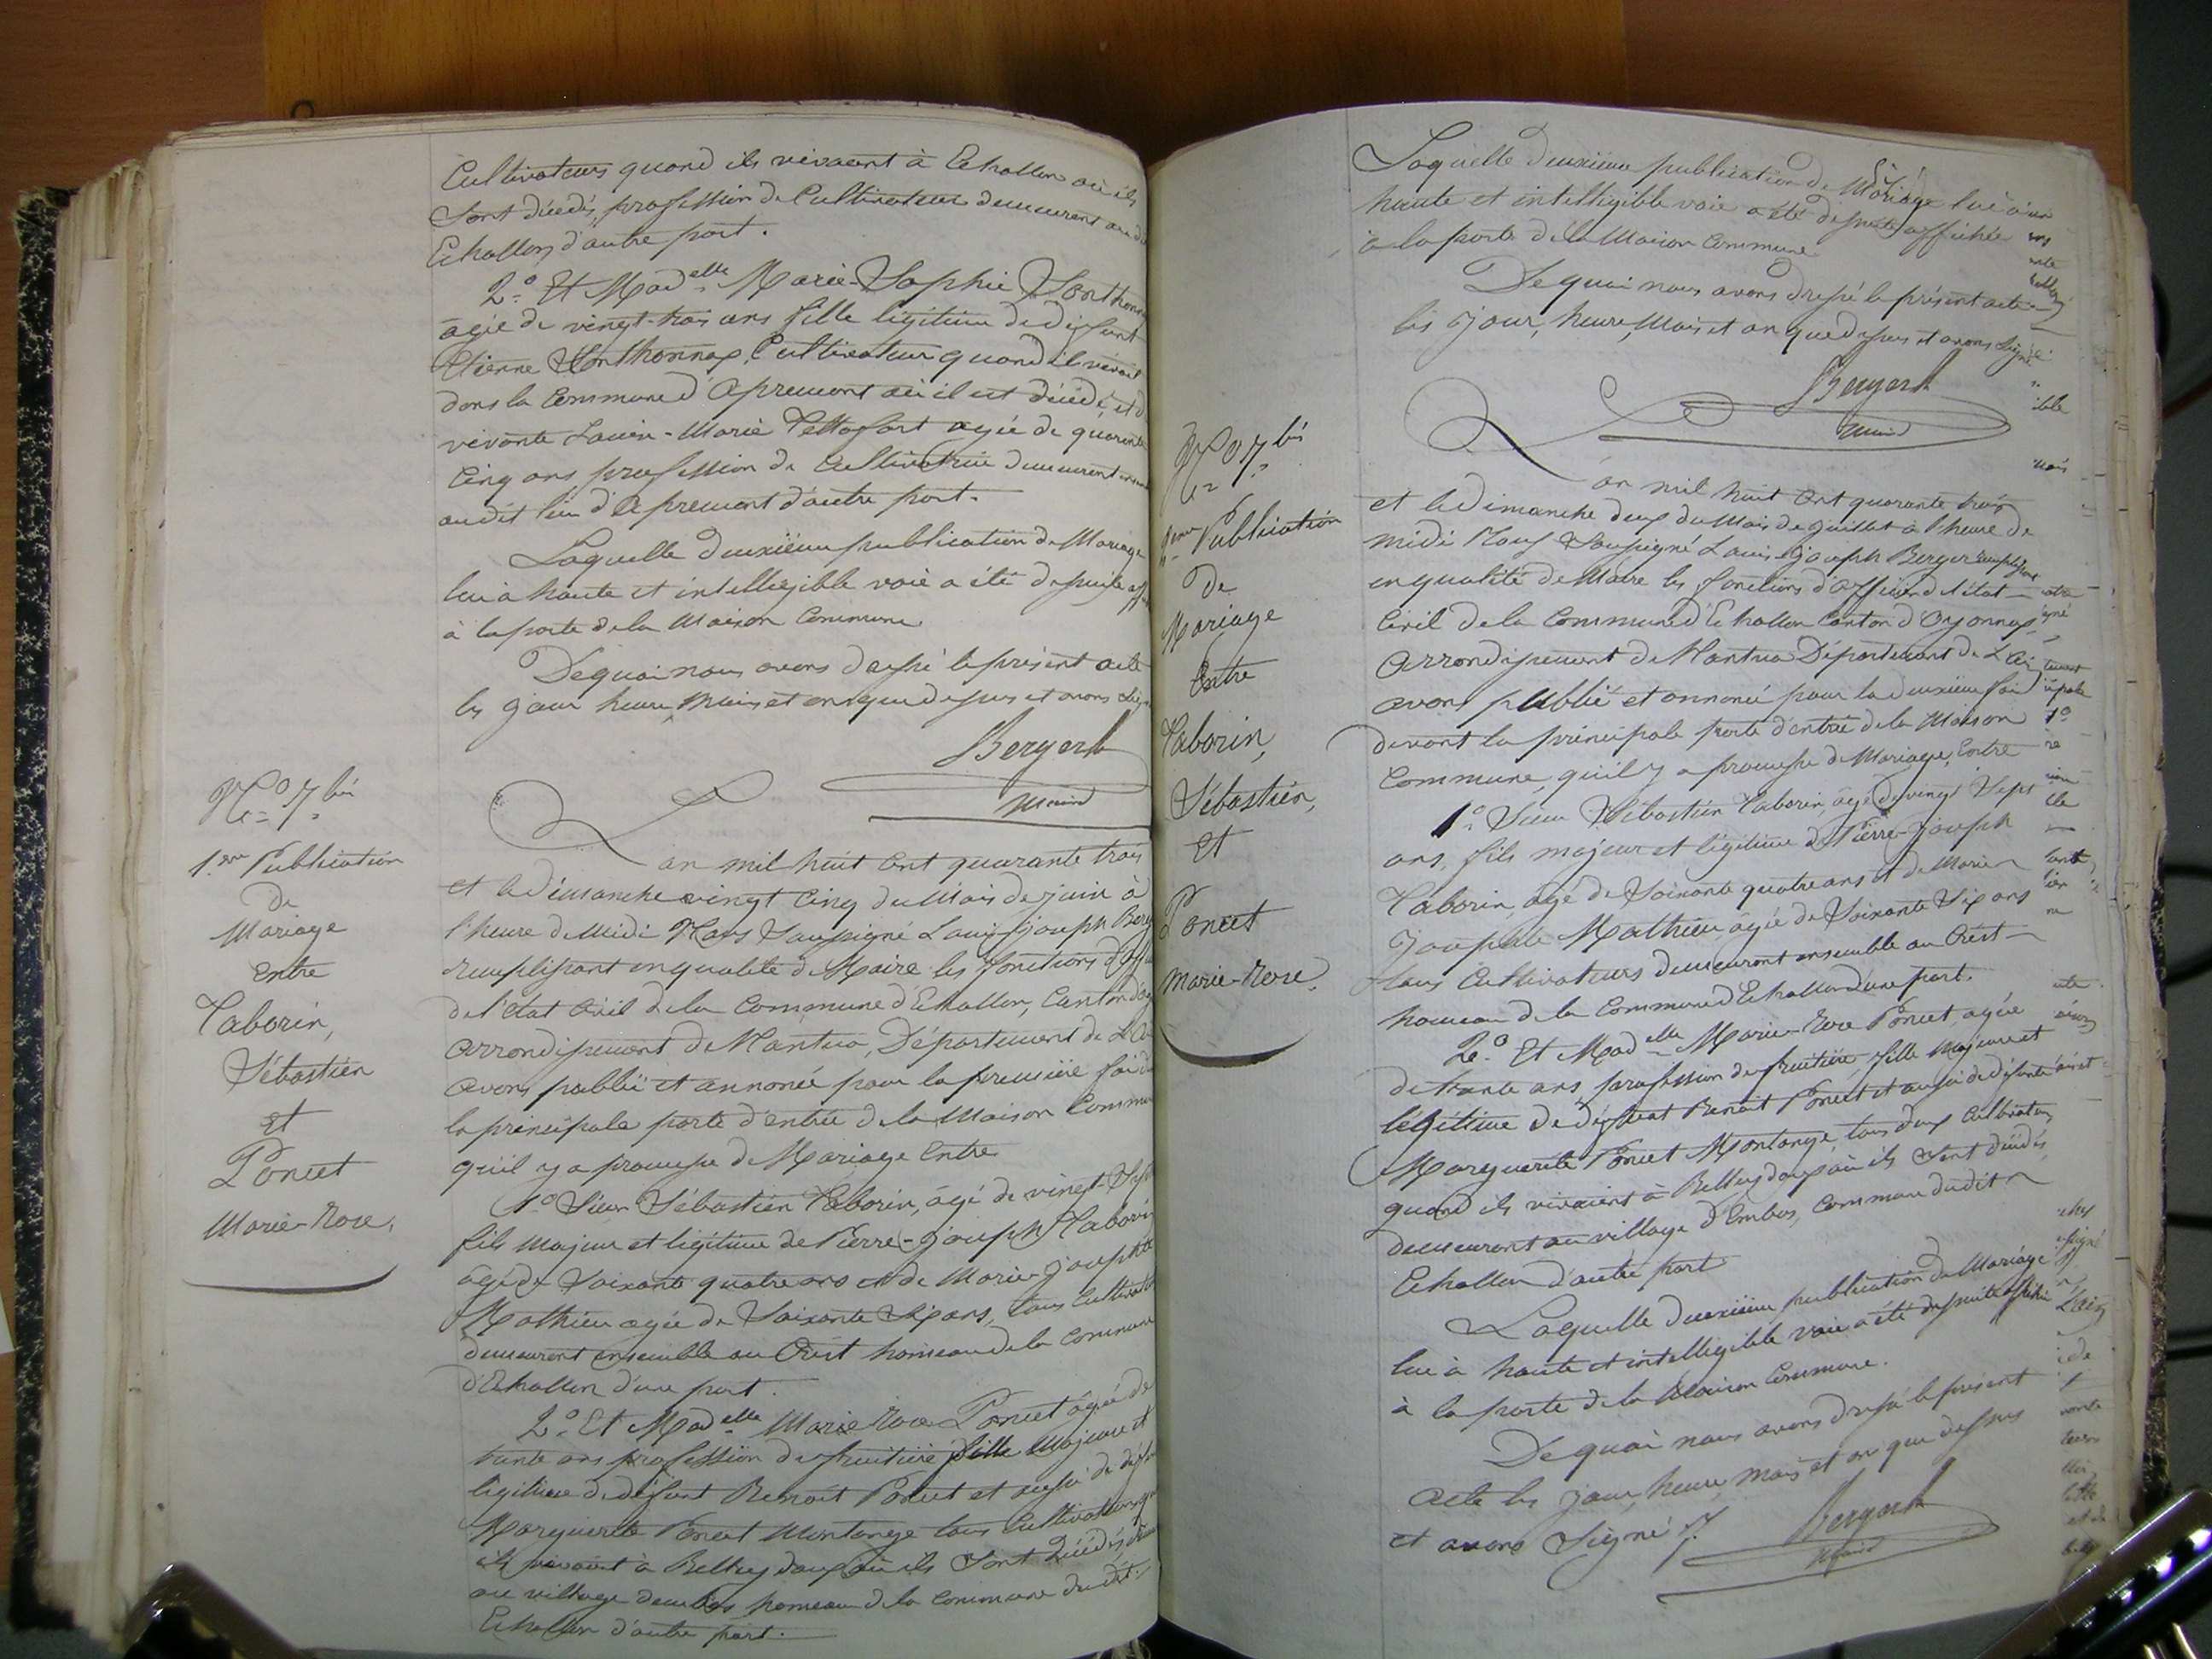 Cultivateurs quand ils vivaient à Echallon où ils
sont décédés, profession de Cultivateur demeurant au dit
Echallon d'autre part.
2.° Et Mad.elle Marie-Sophie Sonthonnax
âgée de vingt-trois ans fille légitime de défunt
Etienne Sonthonnax, Cultivateur quand il vivait
dans la Commune d'Apremont où il est décédé, et d
vivante Marie âgée de quarante
Cinq ans profession de Cultivatrice demeurant
au dit lieu d'Apremont d'autre part.
Laquelle deuxième publication de Mariage
lue à haute et intelligible voie a été de suite aff
à la porte de la Maison Commune.
De quoi nous avons dressé le présent acte
les jour heure, Mois et an que dessus et avons sig
Berger
Maire
N.° 7. bis
1.ere Publication
De
Mariage
Entre
Taborin,
Sébastien
et
Poncet
Marie-Rose,
L'an mil huit cent quarante trois
et le dimanche vingt cinq du Mois de juin à
l'heure de Midi Nous Soussigné Louis-joseph Berg
remplissant en qualité de Maire les fonctions d'off
de l'état Civil de la Commune d'Echallon, Canton d'oy
Arrondissement de Nantua, Département de L'Ai
avons publié et annoncé pour la première fois d
la principale porte d'entrée de la Maison Commu
qu'il y a promesse de Mariage Entre
1.° Sieur Sébastien Taborin, âgé de vingt-Sep
fils Majeur et légitime de Pierre-joseph Taborin
âgé de Soixante quatre ans et de Marie-josephte
Mathieu agée de Soixante Six ans, tous Cultivate
demeurant ensemble au Crêt hameau de la Commune
d'Echallon d'une part.
2.° Et Mad.elle Marie Rose Poncet âgée de
trente ans profession de fruitière fille Majeure et
légitime de défunt Benoit Poncet et aussi de défu
Marguerite Poncet Montange tous Cultivateurs qu
ils vivaient à Belleydoux où ils Sont décédés
au village hameau de la Commune du dit
Echallon d'autre part.
Laquelle deuxième publication de Mariage lue à
haute et intelligible voie a été de suite affichée
à la porte de la Maison Commune
De quoi nous avons dressé le présent acte
les jour, heure, Mois et an que dessus et avons signé
Berger
Maire
N.° 7. bis
2.eme Publication
De
Mariage
Entre
Taborin,
Sébastien,
Et
Poncet
Marie-Rose.
L'an mil huit cent quarante trois
et le dimanche deux du Mois de Juillet à l'heure de
midi Nous Soussigné Louis-joseph Berger remplissant
en qualité de Maire les fonctions d'officier de l'état
Civil de la Commune d'Echallon Canton d'Oyonnax
Arrondissement de Nantua Département de L'Ain
avons publié et annoncé pour la deuxième fois
devant la principale porte d'entrée de la Maison
Commune, qu'il y a promesse de Mariage, Entre
1.° Sieur Sébastien Taborin, âgé de vingt Sept
ans, fils majeur et légitime de Pierre-joseph
Taborin, âgé de Soixante quatre ans et de Marie
josephte Mathieu, âgée de Soixante Six ans
tous Cultivateurs demeurant ensemble au Crêt
hameau de la Commune d'Echallon d'une part.
2.° Et Mad.elle Marie-Rose Poncet, agée
de trente ans profession de fruitière, fille Majeure et
légitime de défunt Benoit Poncet et aussi de défunte
Marguerite Poncet Montange, tous deux Cultivateurs
quand ils vivaient à Belleydoux où ils Sont décédés,
demeurant au village d'Embos, Commune du dit
Echallon d'autre part
Laquelle deuxième publication de Mariage
lue à haute et intelligible voie a été de suite affichée
à la porte de la Maison Commune.
De quoi nous avons dressé le présent
acte les jour, heure, mois et an que dessus
et avons Signé
Berger
Maire